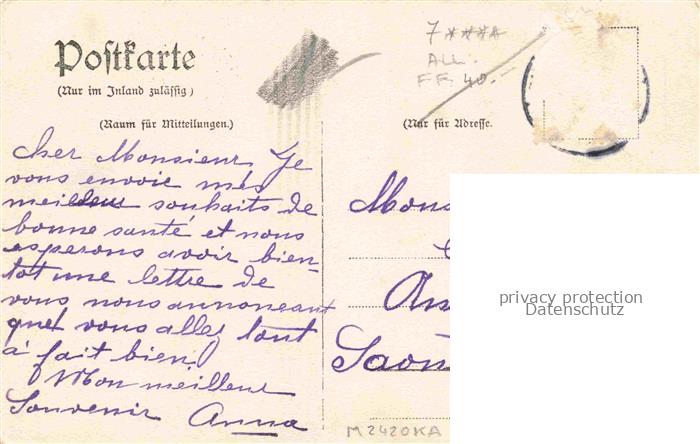 Postkarte
(Nur im Inland zulässig)
(Raum für Mitteilungen.)
Cher Monsieur, Je
vous envoie mes
meilleur souhaits de
bonne santé et nous
esperons avoir bien-
tot une lettre de
vous nous annonceant
quel vous allez tout
à fait bien,
Mon meilleur
Souvenir Anna
7 ****
ALL.
FF 40.-
(Nur für Adresse.
Mons
An
Saôn
privacy protection
Datenschutz
M2420KA